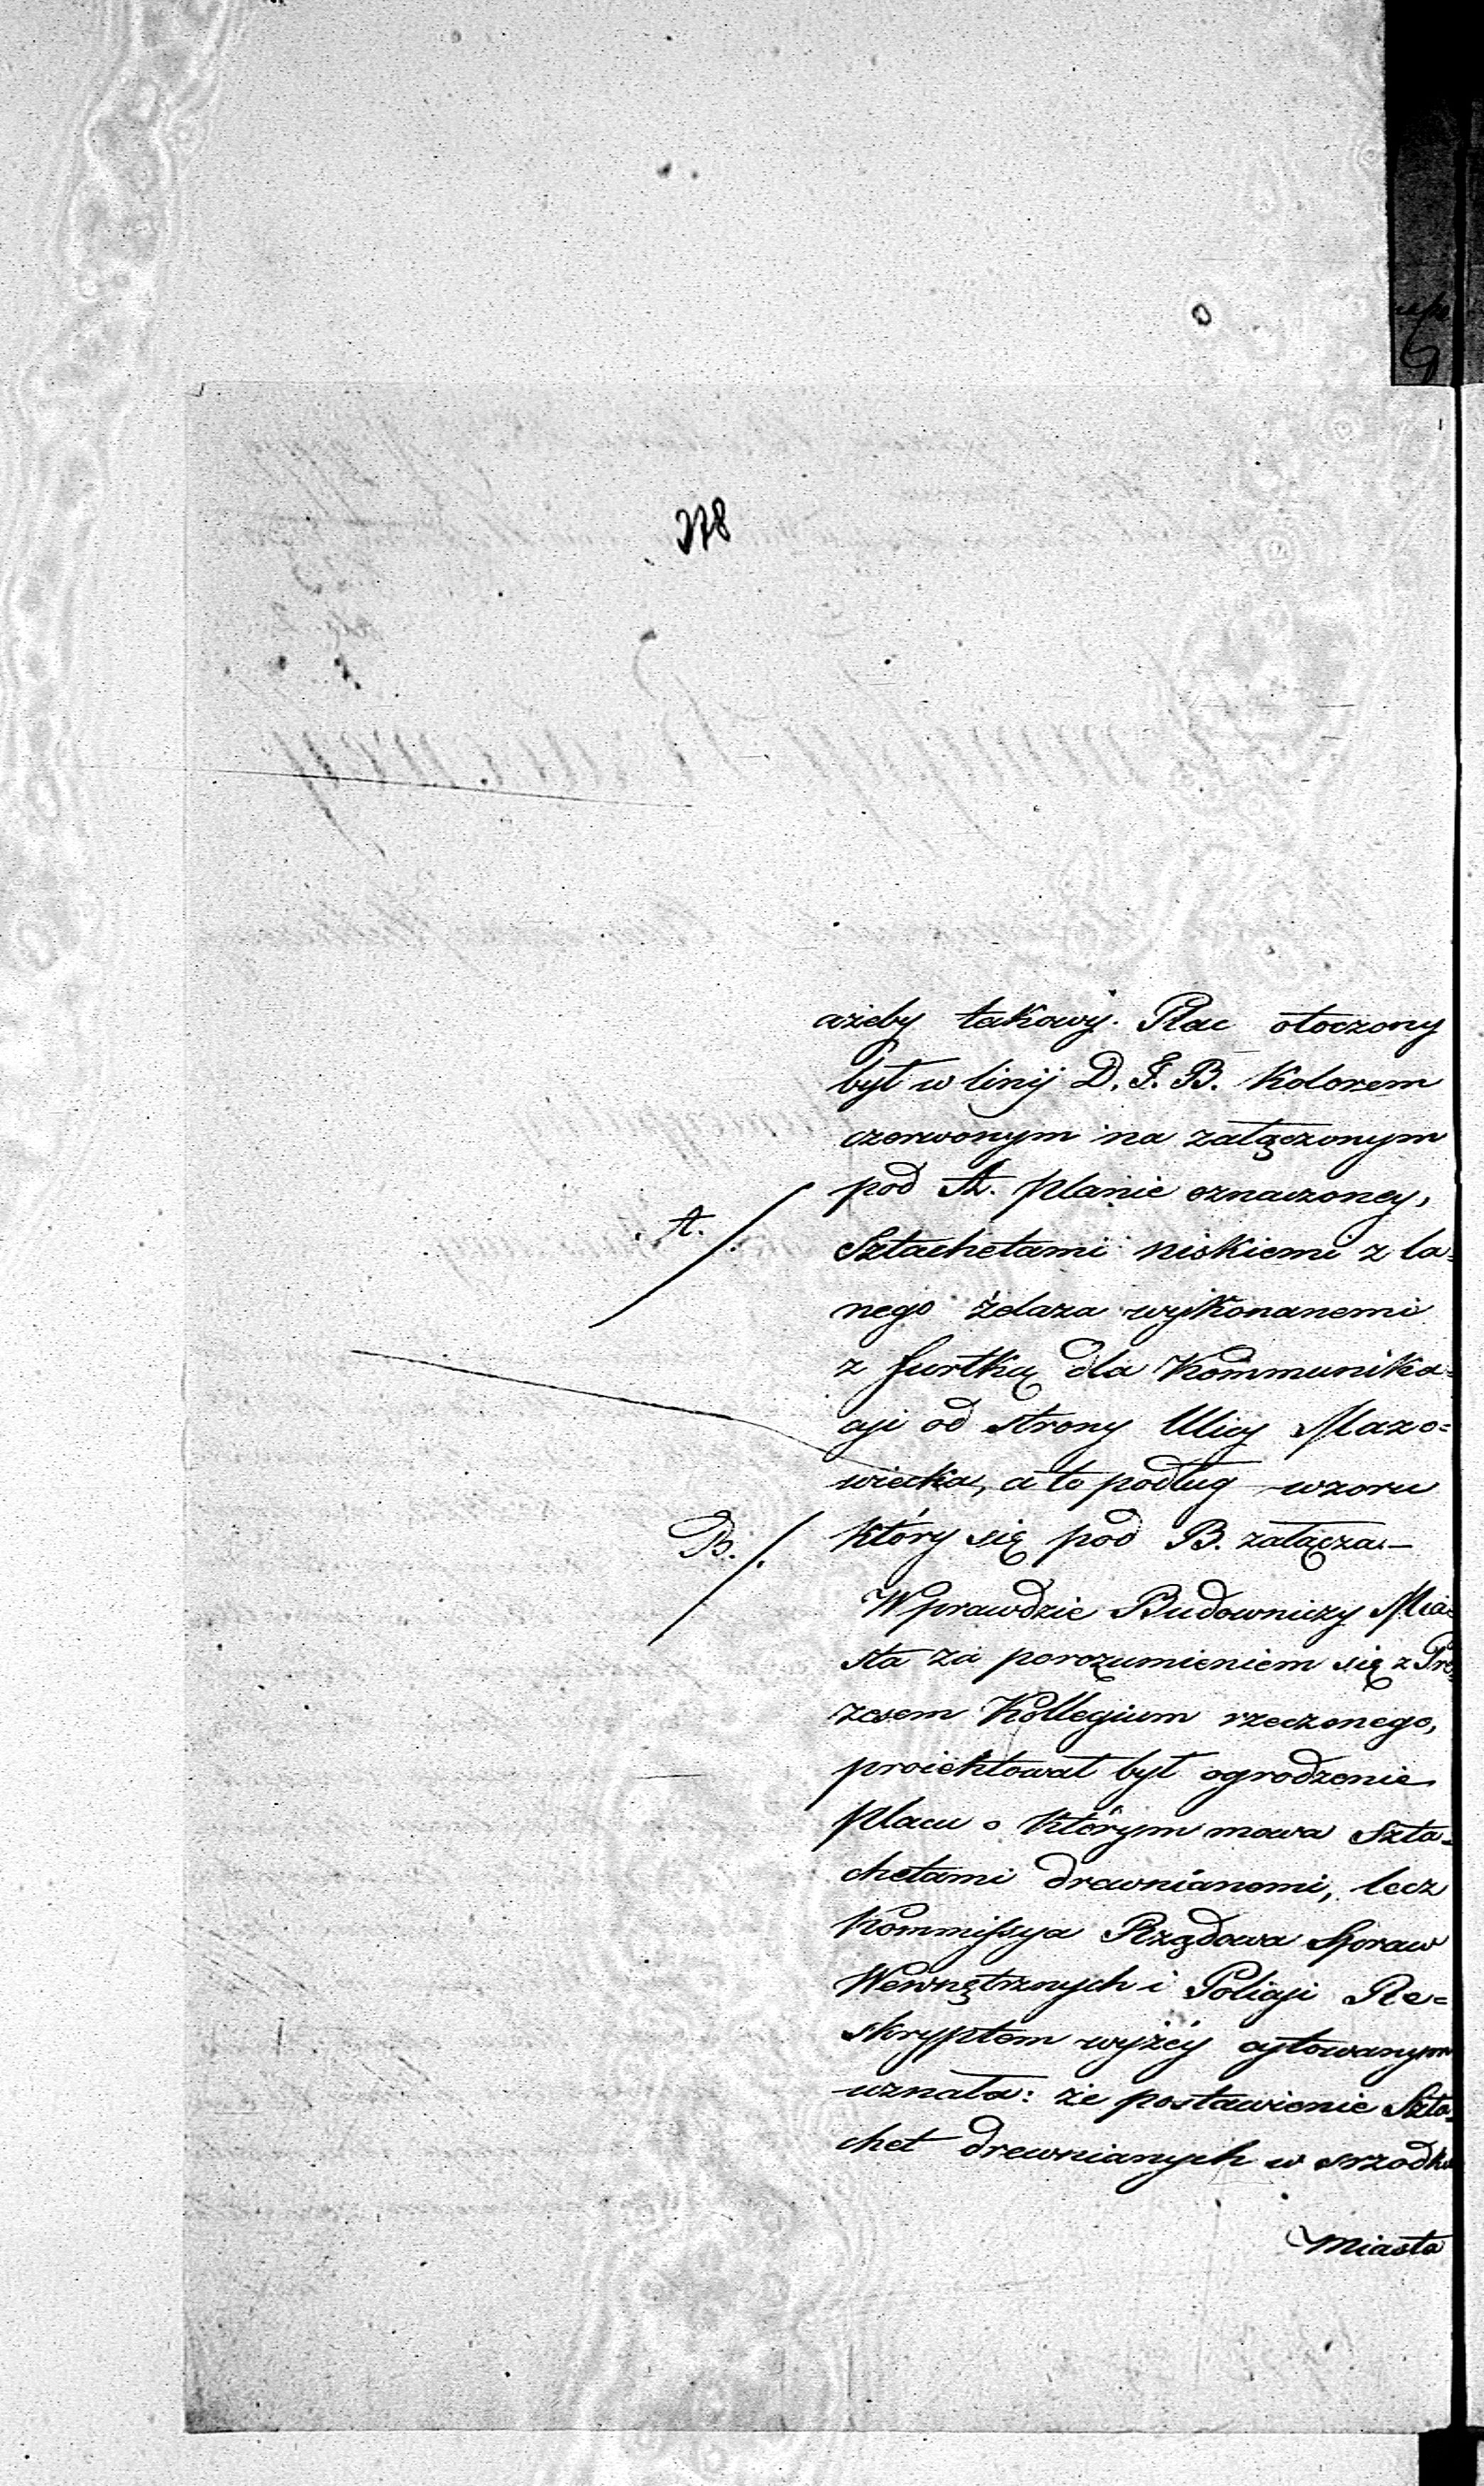 278
ażeby takowy Plac otoczony
był w linij D. F. B. Kolorem
czerwonym na załączonym
pod A. planie oznaczoney,
A./.
Sztachetami niskiemi z la=
nego żelaza wykonanemi
z furtką dla Kommunika=
cyi od strony Ulicy Mazo=
wiecka, a to podług wzoru
B./.
który się pod B. załącza.—
Wprawdzie Budowniczy Mia=
sta za porozumieniem się z Pre=
zesem Kollegium rzeczonego,
proiektował był ogrodzenie
placu o którym mowa Szta=
chetami drewnianemi, lecz
Kommissya Rządowa Spraw
Wewnętrznych i Policyi Re=
skryptem wyżéy cytowanym
uznała: że postawienie Szta=
chet drewnianych w srzodku
Miasta